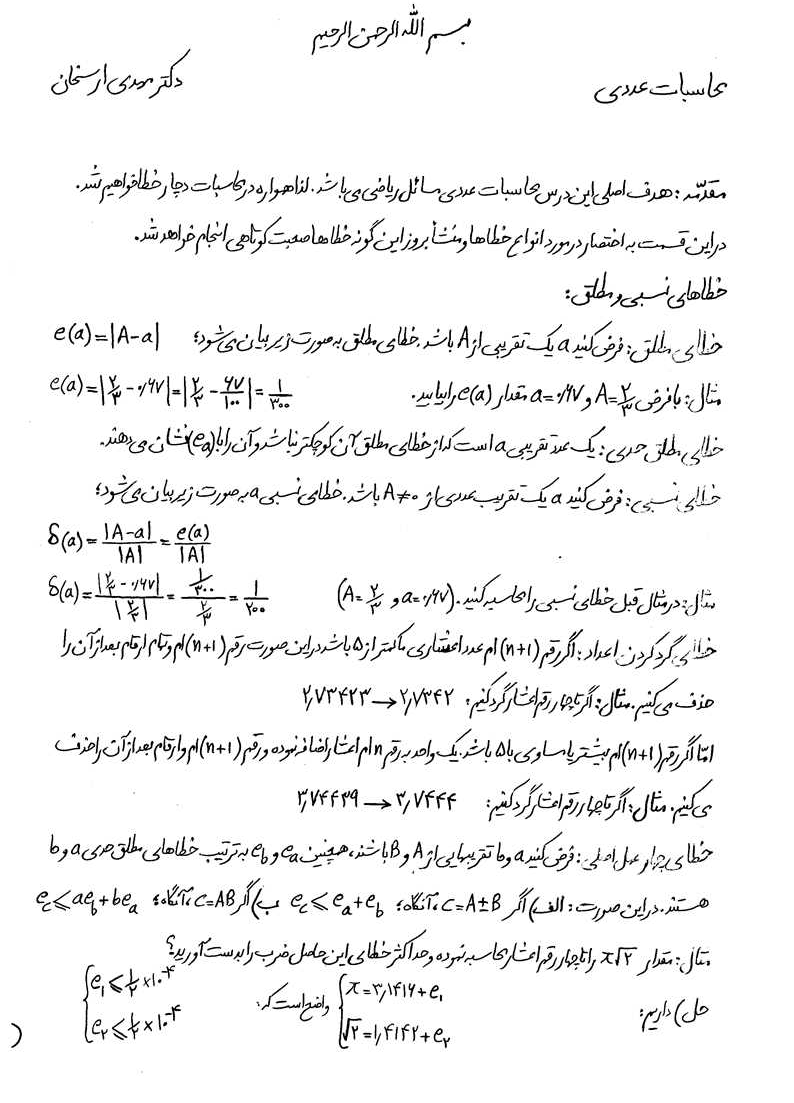 بسم الله الرحمن الرحیم
محاسبات عددی دکتر مهدی ارسنجان
مقدّمه: هدف اصلی این درس محاسبات عددی مسائل ریاضی می باشد. لذا همواره در محاسبات دچار خطا خواهیم شد.
در این قسمت به اختصار در مورد انواع خطاها و منشأ بروز این گونه خطاها صحبت کوتاهی انجام خواهد شد.
خطاهای نسبی و مطلق:
خطای مطلق: فرض کنید a یک تقریبی از A باشد. خطای مطلق به صورت زیر بیان می شود؛ e(a)=|A-a|
مثال: با فرض A=۲/۳ و a=۰٫۶۷ مقدار e(a) را بیابید. e(a)=|۲/۳ - ۰٫۶۷|=|۲/۳ - ۶۷/۱۰۰|=۱/۳۰۰
خطای مطلق حدی: یک عدد تقریبی a است که از خطای مطلق آن کوچکتر نباشد و آن را با (e_a) نشان می دهند.
خطای نسبی: فرض کنید a یک تقریب عددی از A≠۰ باشد. خطای نسبی a به صورت زیر بیان می شود؛
δ(a)=|A-a|/|A|=e(a)/|A|
مثال: در مثال قبل خطای نسبی را محاسبه کنید. (a=۰٫۶۷ و A=۲/۳) δ(a)=|۲/۳ - ۰٫۶۷|/|۲/۳|=(۱/۳۰۰)/(۲/۳)=۱/۲۰۰
خطای گرد کردن اعداد: اگر رقم (n+۱) ام عدد اعشاری ما کمتر از ۵ باشد در این صورت رقم (n+۱) ام و تمام ارقام بعد از آن را
حذف می کنیم. مثال: اگر تا چهار رقم اعشار گرد کنیم: ۲٫۷۳۴۲۳ → ۲٫۷۳۴۲
امّا اگر رقم (n+۱) ام بیشتر یا مساوی با ۵ باشد. یک واحد به رقم n ام اعشار اضافه نموده و رقم (n+۱) ام و ارقام بعد از آن را حذف
می کنیم. مثال: اگر تا چهار رقم اعشار گرد کنیم: ۳٫۷۴۴۳۹ → ۳٫۷۴۴۴
خطای چهار عمل اصلی: فرض کنید a و b تقریبهایی از A و B باشند، همچنین e_a و e_b به ترتیب خطاهای مطلق حدی a و b
هستند. در این صورت: الف) اگر C=A±B، آنگاه؛ e_c ≤ e_a+e_b ب) اگر C=AB، آنگاه؛ e_c ≤ ae_b+be_a
مثال: مقدار π√۲ را تا چهار رقم اعشار محاسبه نموده و حداکثر خطای این حاصل ضرب را بدست آورید؟
حل) داریم: {π=۳٫۱۴۱۶+e_۱ واضح است که: {e_۱ ≤ ۱/۲ ×۱۰^-۴
√۲=۱٫۴۱۴۲+e_۲ e_۲ ≤ ۱/۲ ×۱۰^-۴